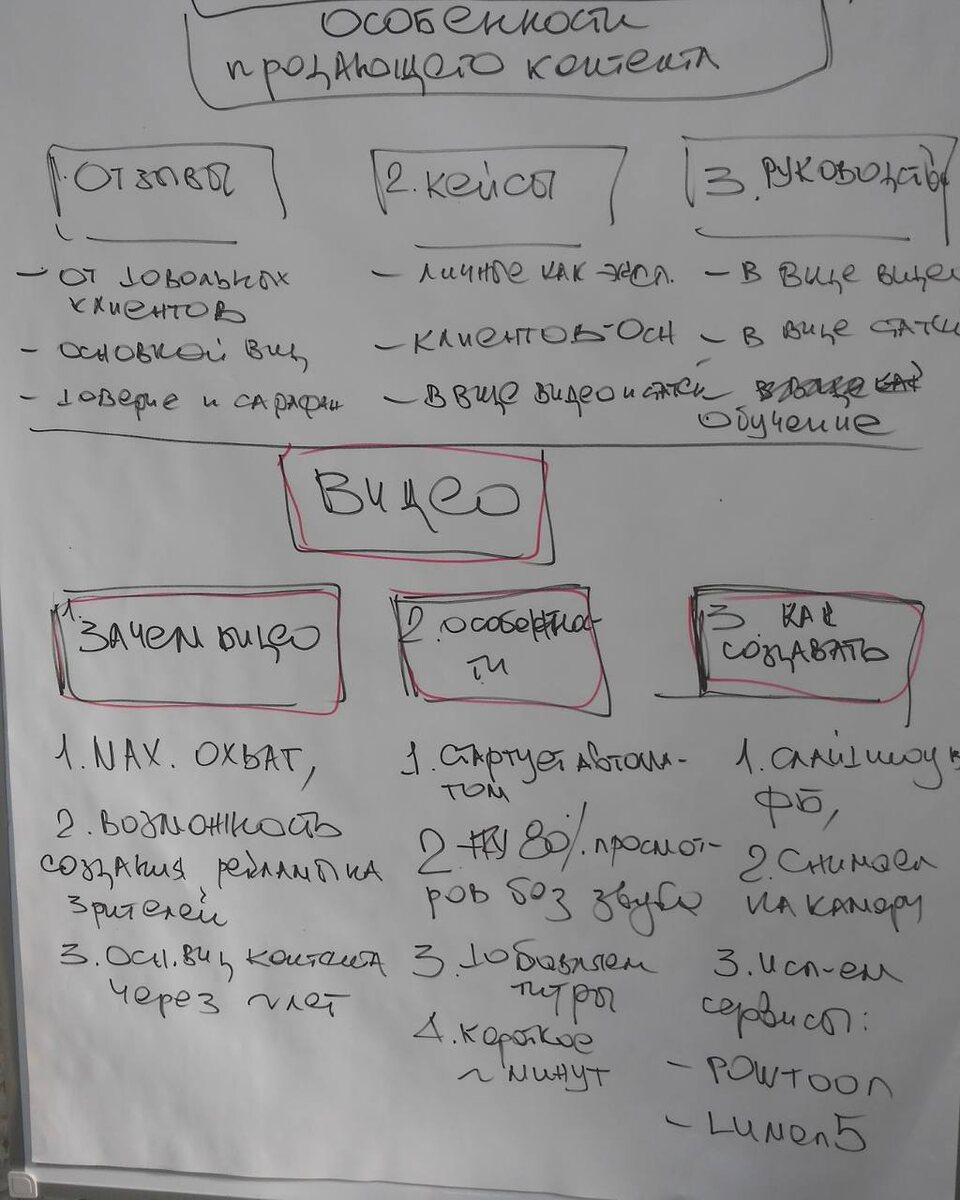 Особенности
продающего контента
1. Отзывы
- от довольных
клиентов
- основной вид
- доверие и сарафан
2. Кейсы
- личные как эксп.
- клиентов-осн
- в виде видео и статьи
3. Руководства
- в виде видео
- в виде статьи
Обучение
Видео
1. Зачем видео
1. MAX. охват,
2. Возможность
создания рекламы на
зрителей
3. Осн. вид контента
через 2 лет
2. Особенно-
сти
1. Стартует автома-
том
2. 80% просмот-
ров без звука
3. Добавляем
титры
4. Короткое
2 минут
3 Как
создавать
1. Слайдшоу в
ФБ,
2. Снимаем
на камеру
3. Исп-ем
сервисы:
- POWTOON
- Lumen5